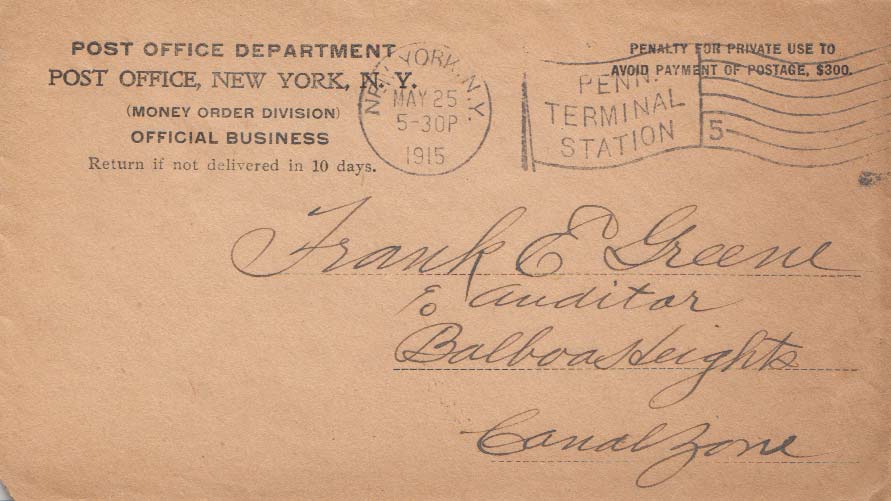 POST OFFICE DEPARTMENT
POST OFFICE, NEW YORK, N. Y.
(MONEY ORDER DIVISION)
OFFICIAL BUSINESS
Return if not delivered in 10 days.
NEW YORK, N.Y.
MAY 25
5-30P
1915
PENN.
TERMINAL
STATION
5
PENALTY FOR PRIVATE USE TO
AVOID PAYMENT OF POSTAGE, $300.
Frank E Greene
c/o Auditor
Balboa Heights
Canal Zone